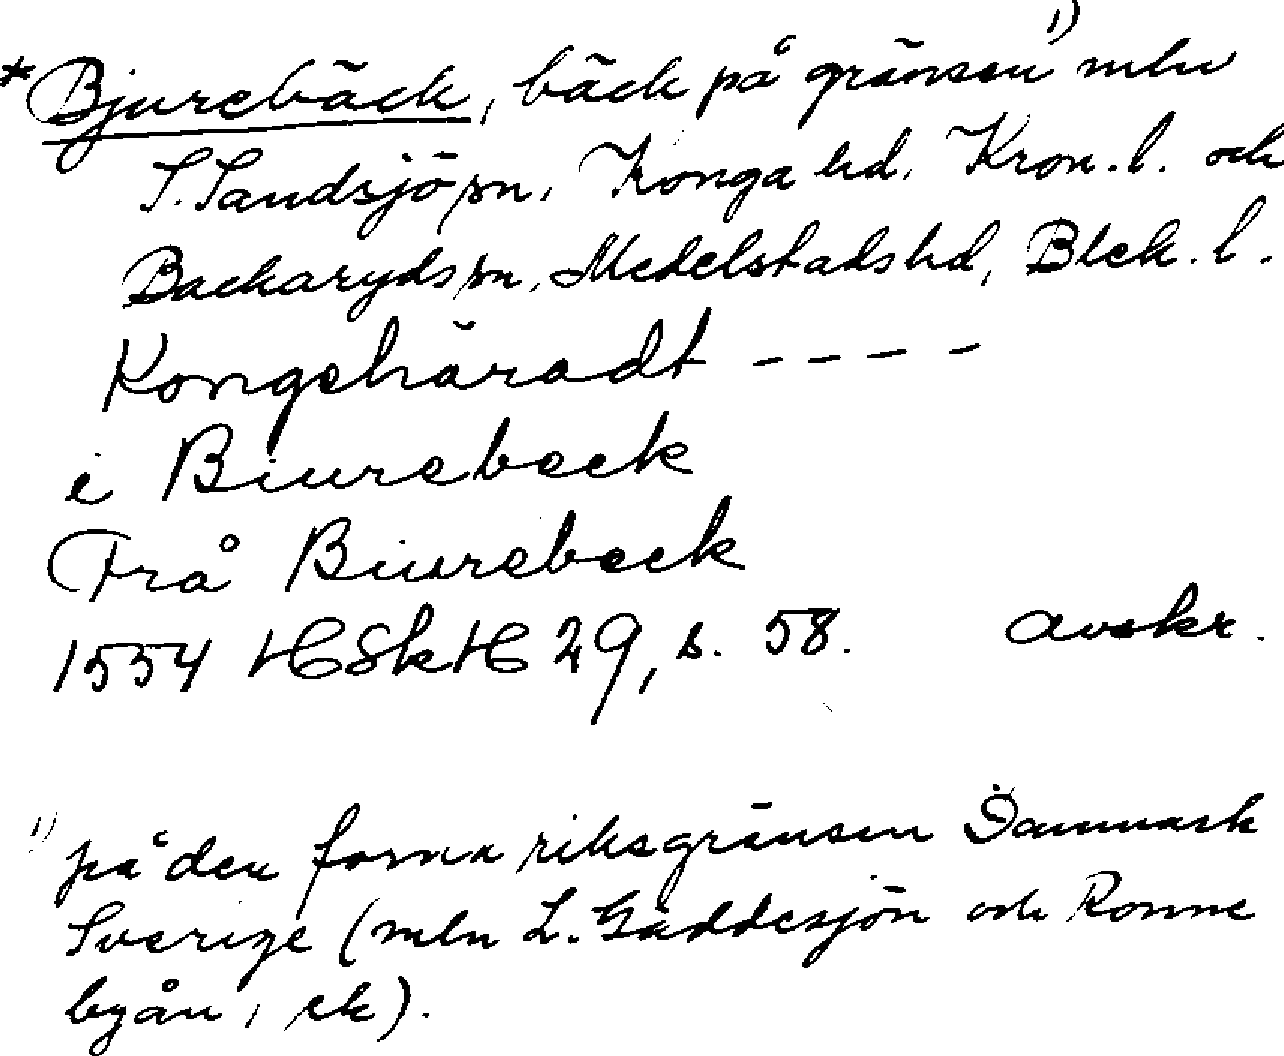 *Bjurebäck, bäck på gränsen 1) mln
S. Sandsjö sn, Konga hd, Kron. l. och
Backaryds sn, Medelstads hd, Blek. l.
Kongehäradt - - - -
i Biurebeck
Frå Biurebeck
1554 HSkH 29, s. 58. avskr.
1) på den forna riksgränsen Danmark
Sverige (mln L. Gäddesjön och Ronne
byån, ek).